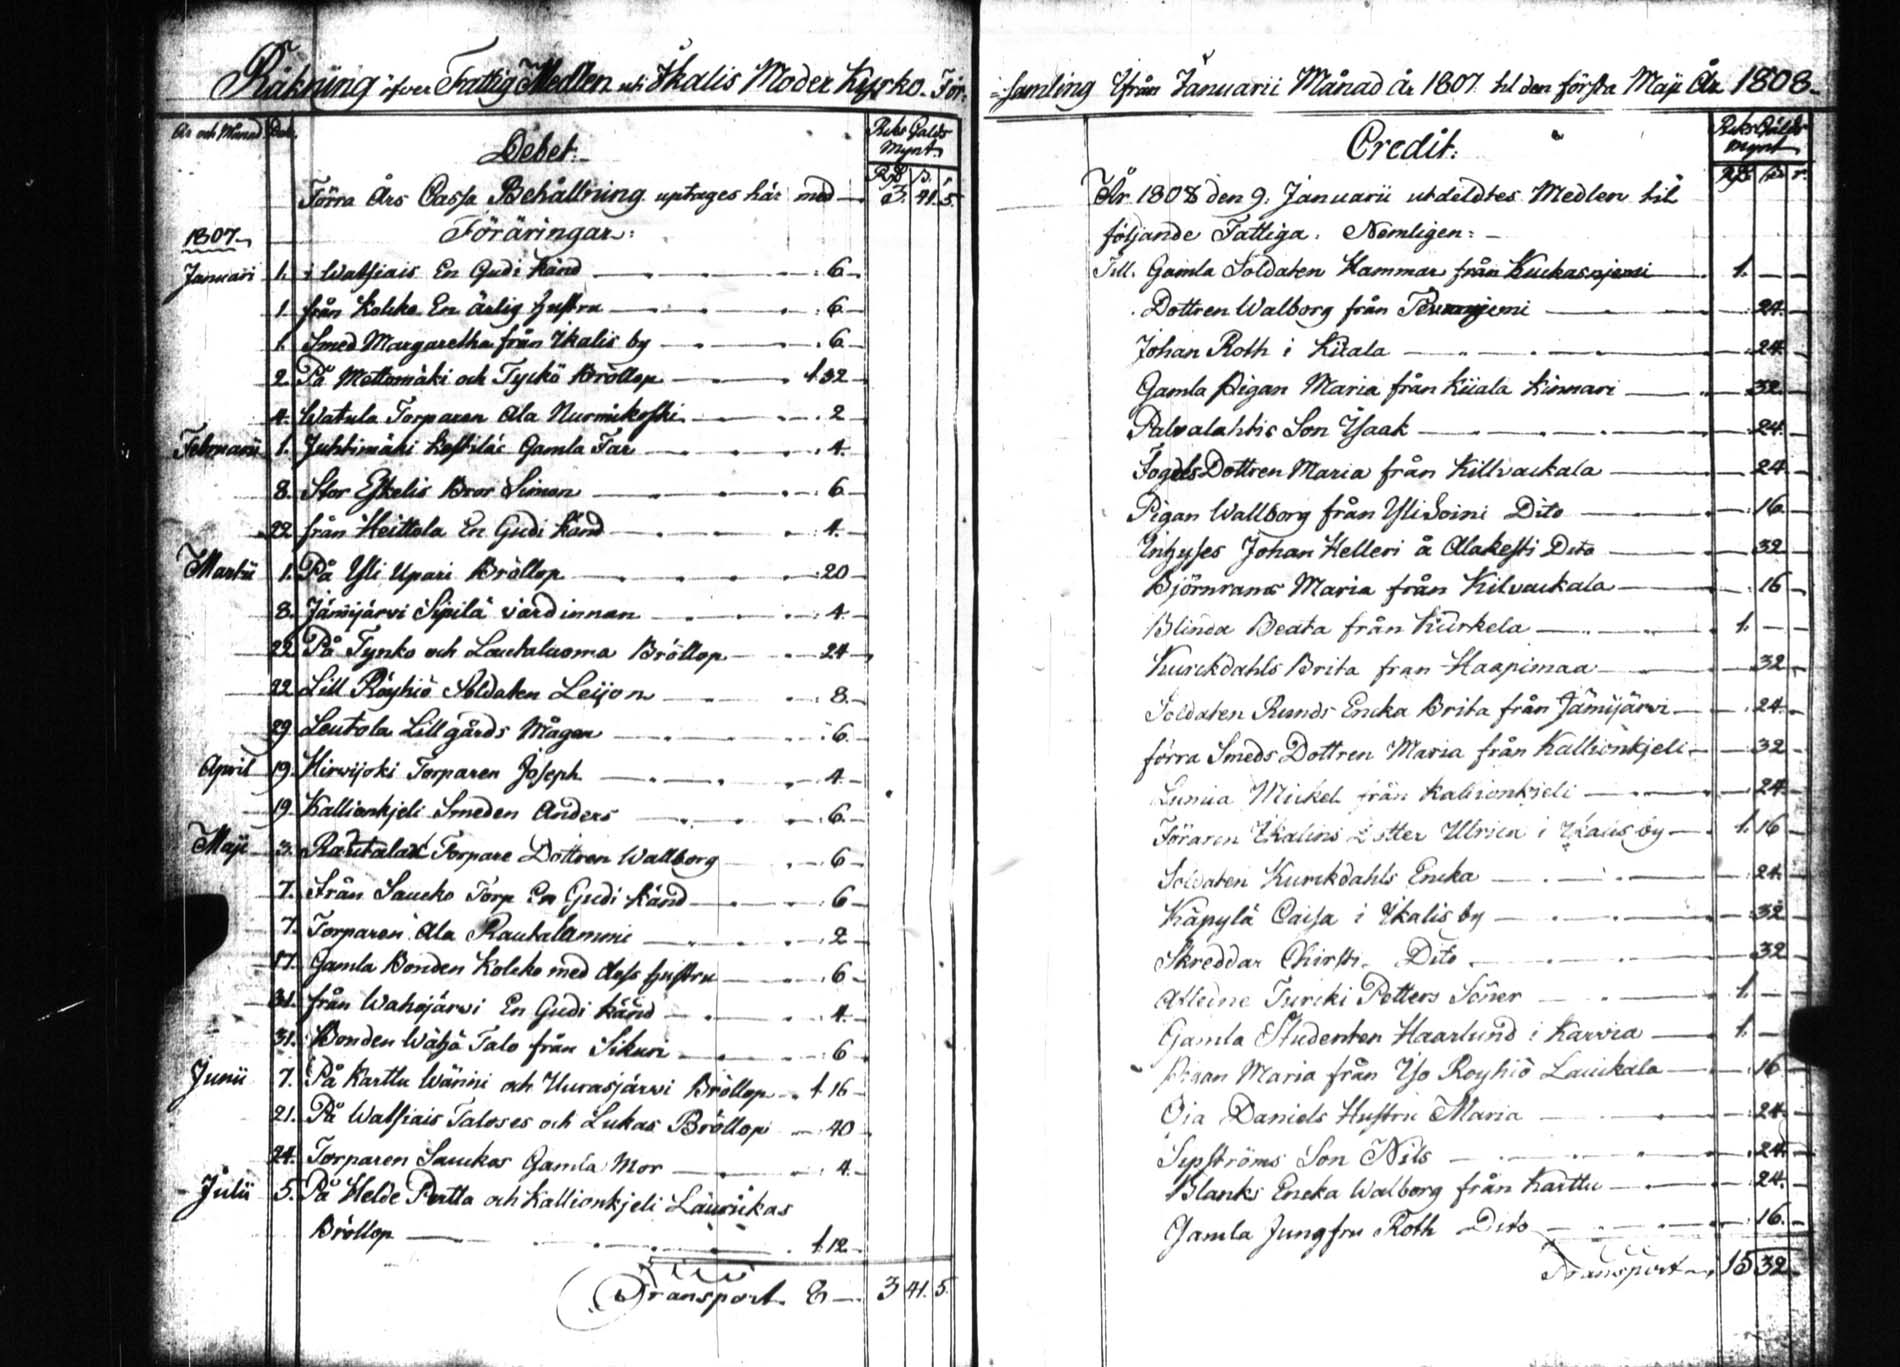 Räkning öfver Fattig Medlen uti Ikalis Moder Kyrko För=
År och Månad Dat.
Debet:
Riks Gälds
Mynt.
Förra Års Cassa Behållning uptages här med — 3. 41. 5.
1807. Föräringar:
Januari 1. i Watsiais En Gudi känd — 6
1. från Kolcko En ärlig hustru — 6
1. Smed Margaretha från Ikalis by — 6
2. På Mettomäki och Tyckö Bröllop — 1.32
4. Watula Torparen Ala Nurmikoski — 2
Februarii 1. Juhtimäki Kostilas Gamla Far — 4.
8. Stor Eskelis Bror Simon — 6
22. från Heittola En Gudi känd — 4.
Martii 1. På Yli Upari Bröllop — 20
8. Jämijärvi Sipilä värdinnan — 4.
22. På Tynko och Lautaluoma Bröllop — 24
22. Lill Röyhiö Soldaten Leijon — 8.
29. Leutola Lillgårds Mågan — 6.
April 19. Hirvijoki Torparen Joseph — 4.
19. Kallionkjeli Smeden Anders — 6
Maji 3. Torpare Dottren Wallborg — 6
7. Från Saucko Torp En Gudi känd — 6
7. Torparen Ala Rautalammi — 2
17. Gamla Bonden Kolcko med dess hustru — 6
31. från Wahojärvi En Gudi känd — 4.
31. Bonden Wähä Talo från Sikuri — 6
Junii 7. På Karttu Wänni och Uurasjärvi Bröllop — 1.16
21. På Watsiais Taloses och Lukas Bröllop — 40
24. Torparen Sauckos Gamla Mor — 4.
Julii 5. På Helde Pertta och Kallionkjeli Lauruikas
Bröllop — 1.12
Transport — 3 41. 5.
=samling Ifrån Januarii Månad År 1807. til den första Maji År 1808.
Credit:
Riks Gälds
Mynt
År 1808 den 9. Januarii utdeldtes Medlen til
följande Fattiga. Nemligen:
Till. Gamla Soldaten Hammar från Kuckasnjemi — 1. —
Dottren Walborg från — 24.
Johan Roth i Kiiala — 24.
Gamla Pigan Maria från Kiiala Kinnari — 32.
Palvalahtis Son Isaak — 24.
Fogels Dottren Maria från Killvackala — 24
Pigan Wallborg från Yli Soini Dito — 16
Inhyses Johan Helleri å Alakesti Dito — 32
Björnrans Maria från Kilvackala — 16
Blinda Beata från Kurkela — 1. —
Kurckdahls Brita fran Haapimaa — 32
Soldaten Runds Encka Brita från Jämijärvi — 24.
förra Smeds Dottren Maria från Kallionkjeli — 32
Lumia Mickel från Kallionkjeli — 24.
Föraren Ikalins Dotter Ulrica i Ikalis by — 1. 16
Soldaten Kurckdahls Encka — 24.
Käpylä Caisa i Ikalis by — 32
Skreddar Chirsti Dito — 32
Atleine Turcki Petters Söner — 1. —
Gamla Studenten Haarlund i Karvia — 1. —
Pigan Maria från Iso Royhiö Lauckala — 16
Oia Daniels Hustru Maria — 24.
Sipströms Son Nils — 24
Blanks Encka Walborg från Karttu — 24.
Gamla Jungfru Roth Dito — 16.
Transport — 15 32.